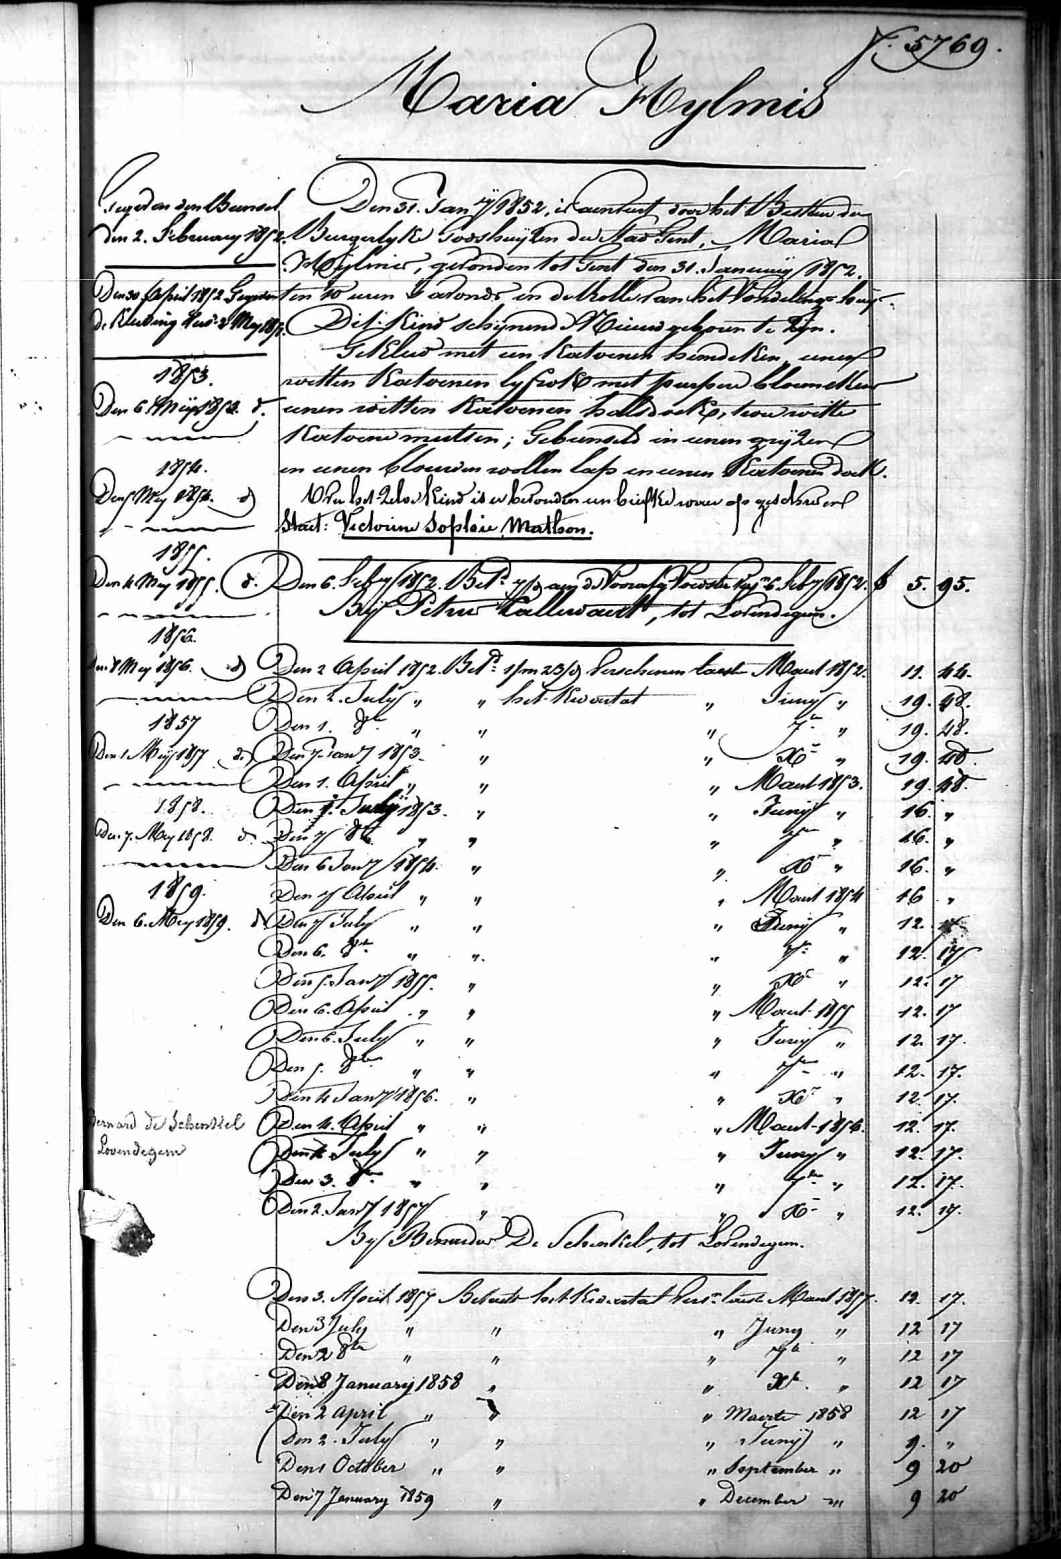 f. 5769.
Maria Hylmis
Gegeven den Bunsel
den 2. February 1852.
Den 30 April 1852 Gegeven
de Kleeding
1853.
Den 6. Mey 1853. d.
1854.
Den 5 Mey 1854. d
1855.
Den 4 Mey 1855. d.
1856.
Den 8 Mey 1856. d
1857
Den 1. Mey 1857 d.
1858.
Den 7. Mey 1858. d.
1859.
Den 6. Mey 1859. d.
Bernard de Schenkel
Lovendegem
Den 31. Jany 1852, is aenveird door het Bestier der
Burgerlyke Godshuyzen der Stad Gent, Maria
Hylmis, gevonden tot Gent den 31. January 1852.
ten 10 uren 's avonds, in de Rolle van het Vondelinge huys.
Dit Kind schynende Nieuw geboren te zyn.
Gekleed met een Katoenen hemdeken, eenen
witten Katoenen lyfrok met purpere bloemekens
eenen witten Katoenen halsdoek, twee witte
Katoene mutsen; Gebunseld in eenen gryzen
en eenen blauwen wollen lap en eenen Katoenen doek.
Op het Zelve Kind is er bevonden een briefke waer op geschreven
Staet: Victorine Sophie Mathon.
Den 6. Feby 1852. Betd 6 Feby 1852. f 5. 95.
By Petrus Callewaert, tot Lovendegem.
Den 2 April 1852. Betd. 1/m 23/d Verschenen laest Maert 1852. 11. 44.
Den 2. July " " het Kwartaal " Juny " 19. 48.
Den 1. 8er " " " 7er " 19. 48.
Den 7 Jany 1853. " " Xr " 19. 48.
Den 1. April " " " Maert 1853. 19. 48.
Den 1. July 1853. " " Juny " 16. "
Den 7 8er " " " 7er " 16. "
Den 6 Jany 1854. " " Xr " 16. "
Den 7 April " " " Maert 1854 16 "
Den 7 July " " " Juny " 12. 17
Den 6. 8er " " " 7er " 12. 17
Den 5. Jany 1855. " " Xr " 12. 17
Den 6. April " " " Maert 1855 12. 17
Den 6. July " " " Juny " 12. 17.
Den 5. 8er " " " 7er " 12. 17.
Den 4 Jany 1856. " " Xr " 12. 17.
Den 4. April " " " Maert 1856. 12. 17.
Den 4 July " " " Juny " 12. 17.
Den 3. 8er " " " 7er " 12. 17.
Den 2. Jany 1857 " " Xr " 12. 17.
By Bernardus De Schenkel, tot Lovendegem.
Den 3. April 1857 Betaelt het Kwartaal Versn laest Maert 1857. 12. 17.
Den 3 July " " " Juny " 12 17
Den 2 8er " " " 7er " 12 17
Den 8 January 1858 " " Xr. " 12 17
Den 2 April " " " Maerte 1858 12 17
Den 2. July " " " Juny " 9. "
Den 1 October " " " September " 9 20
Den 7 January 1859 " " December " 9 20